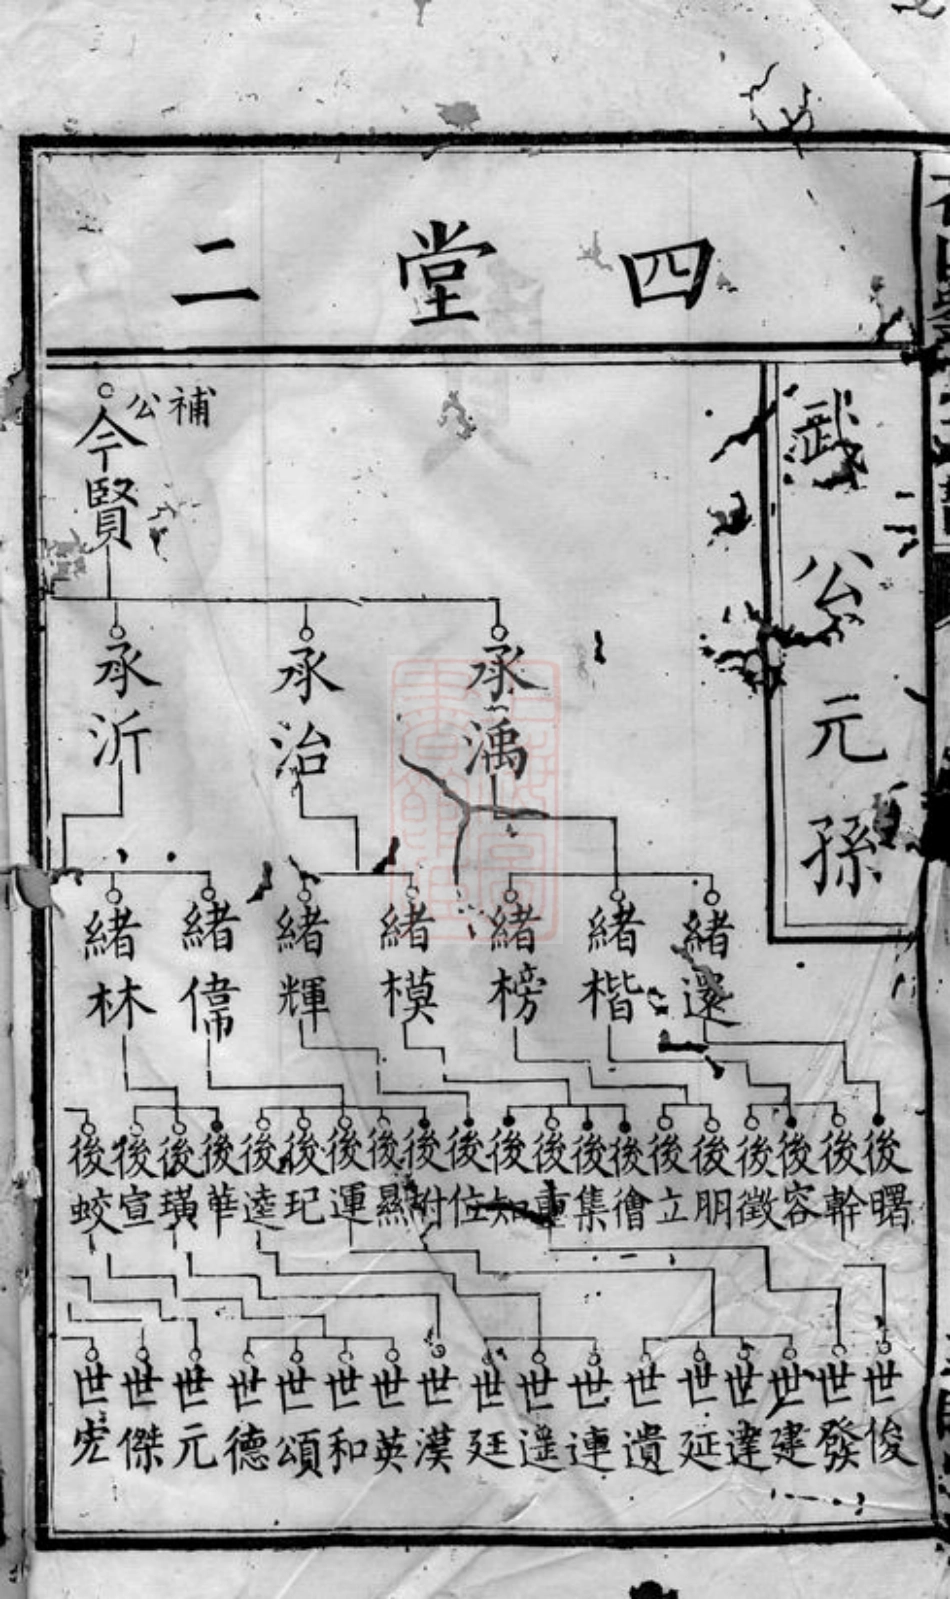 四堂二
武公元孫
補公
今賢
承濊 承治 承沂
緒還 緒楷 緒榜 緒模 緒輝 緒偉 緒林
後曙 後幹 後容 後徵 後朋 後立 後徻 後集 後重 後知 後位 後附 後顯 後運 後玘 後逵 後華 後璜 後宣 後蛟
世俊 世發 世建 世達 世延 世遺 世連 世遥 世廷 世漢 世英 世和 世頌 世德 世元 世傑 世宏